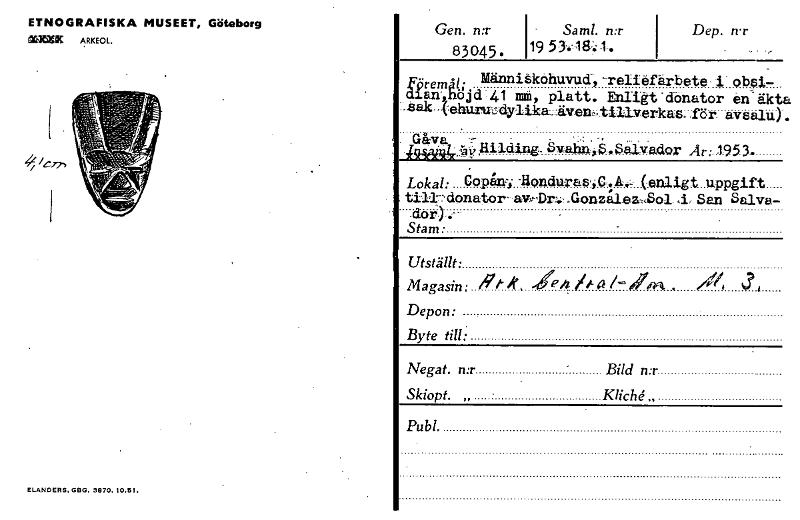 ETNOGRAFISKA MUSEET, Göteborg
ARKEOL.
4,1 cm
ELANDERS, GBG. 3870. 10.51.
Gen. n:r
83045.
Saml. n:r
1953.18.1.
Dep. n:r
Föremål: Människohuvud, reliefarbete i obsi-
dian, höjd 41 mm, platt. Enligt donator en äkta
sak (ehuru dylika även tillverkas för avsalu).
Gåva
Insaml. av Hilding Svahn, S. Salvador År: 1953.
Lokal: Copán, Honduras, C.A. (enligt uppgift
till donator av Dr. González Sol i San Salva-
dor).
Stam:
Utställt:
Magasin: Ark. Central-Am. M. 3.
Depon:
Byte till:
Negat. n:r Bild n:r
Skiopt. „ Kliché „
Publ.